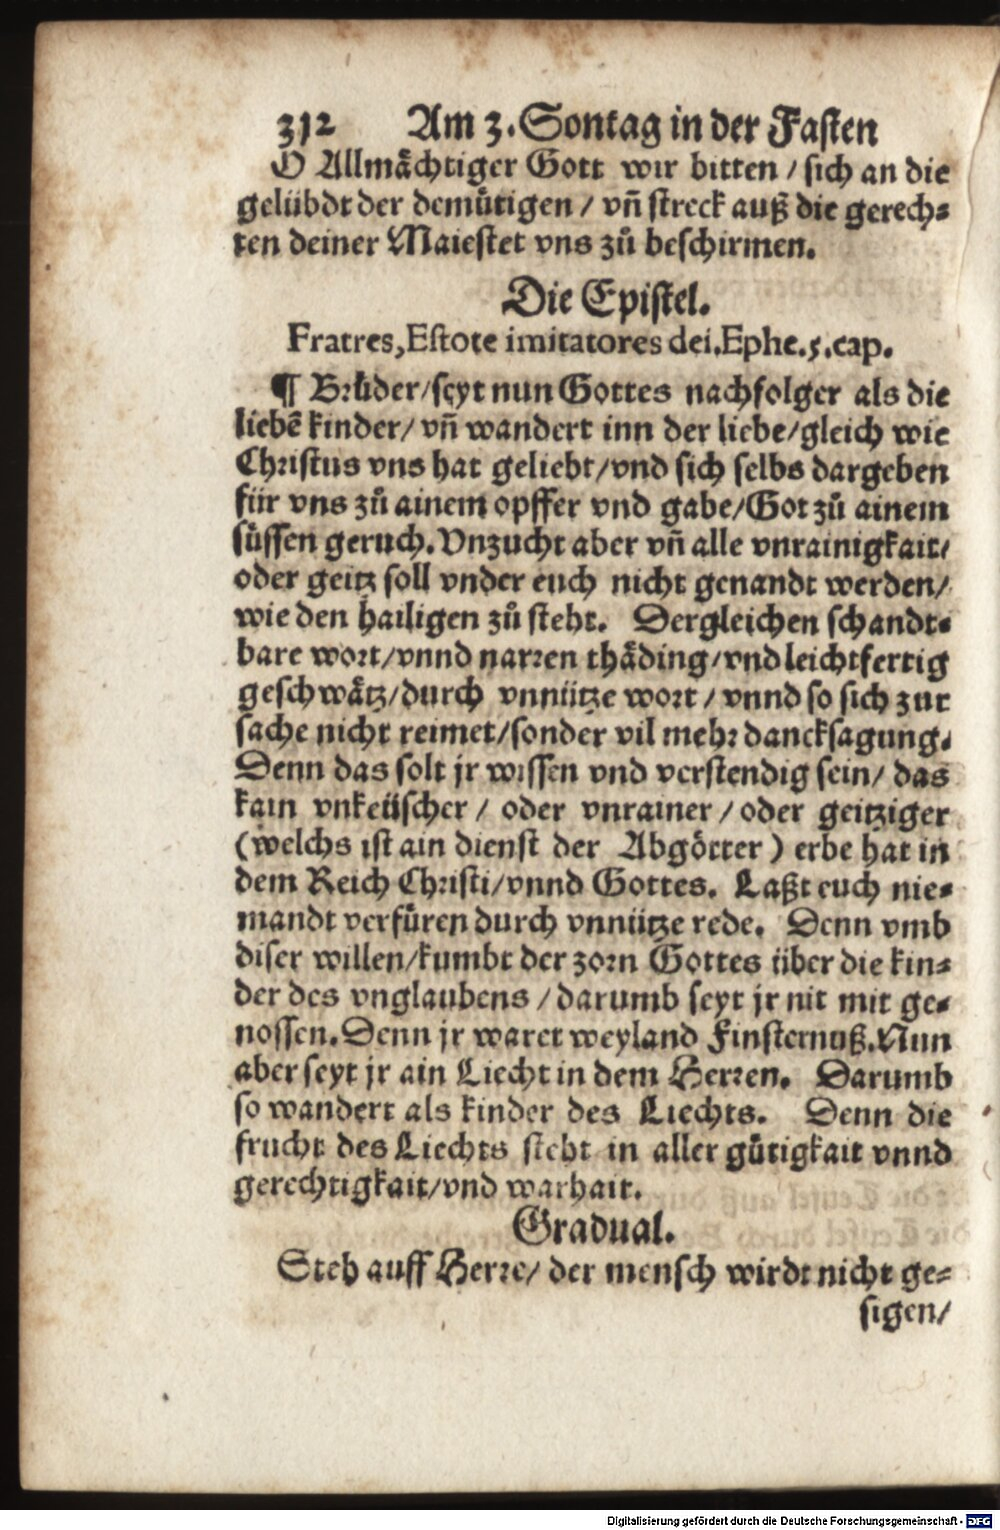 312 Am 3. Sontag in der Fasten
O Allmåchtiger Gott wir bitten / sich an die
gelübdt der demůtigen / vñ streck auß die gerech⸗
ten deiner Maiestet vns zů beschirmen.
Die Epistel.
Fratres, Estote imitatores dei. Ephe. 5. cap.
¶ Brůder / seyt nun Gottes nachfolger als die
liebẽ kinder / vñ wandert inn der liebe / gleich wie
Christus vns hat geliebt / vnd sich selbs dargeben
für vns zů ainem opffer vnd gabe / Got zů ainem
sůssen geruch. Vnzucht aber vñ alle vnrainigkait /
oder geitz soll vnder euch nicht genandt werden /
wie den hailigen zů steht. Dergleichen schandt⸗
bare wort / vnnd narren thåding / vnd leichtfertig
geschwåtz / durch vnnütze wort / vnnd so sich zur
sache nicht reimet / sonder vil mehr dancksagung.
Denn das solt jr wissen vnd verstendig sein / das
kain vnkeüscher / oder vnrainer / oder geitziger
(welchs ist ain dienst der Abgötter) erbe hat in
dem Reich Christi / vnnd Gottes. Laßt euch nie⸗
mandt verfüren durch vnnütze rede. Denn vmb
diser willen / kumbt der zorn Gottes über die kin⸗
der des vnglaubens / darumb seyt jr nit mit ge⸗
nossen. Denn jr waret weyland Finsternuß. Nun
aber seyt jr ain Liecht in dem Herren. Darumb
so wandert als kinder des Liechts. Denn die
frucht des Liechts steht in aller gůtigkait vnnd
gerechtigkait / vnd warhait.
Gradual.
Steh auff Herre / der mensch wirdt nicht ge⸗
sigen /
Digitalisierung gefördert durch die Deutsche Forschungsgemeinschaft - DFG